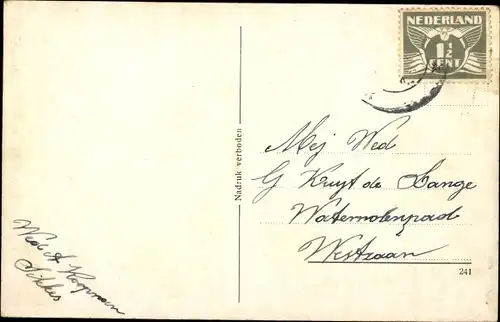 NEDERLAND
1½
CENT
Nadruk verboden
Mej Wed
G Kruyt de Lange
Watermolenpad
Westzaan
241
Wed A Koopman